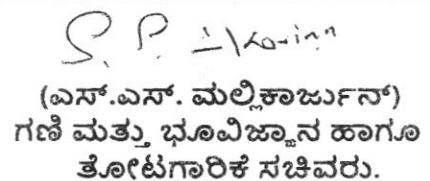 (ಎಸ್.ಎಸ್. ಮಲ್ಲಿಕಾರ್ಜುನ್)
ಗಣಿ ಮತ್ತು ಭೂವಿಜ್ಞಾನ ಹಾಗೂ
ತೋಟಗಾರಿಕೆ ಸಚಿವರು.